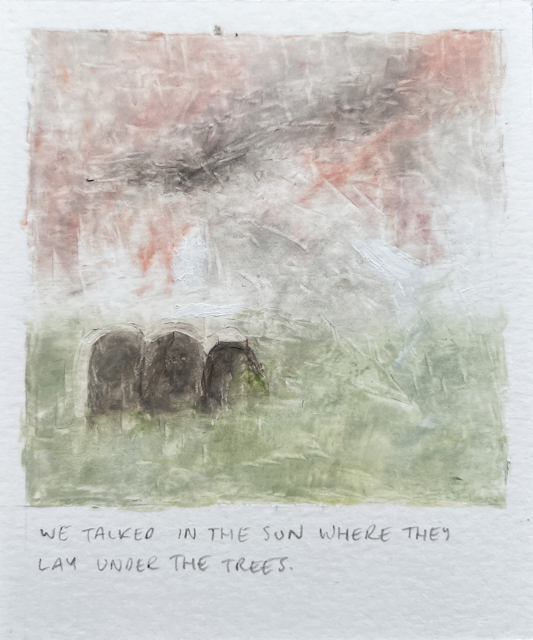 WE TALKED IN THE SUN WHERE THEY
LAY UNDER THE TREES.